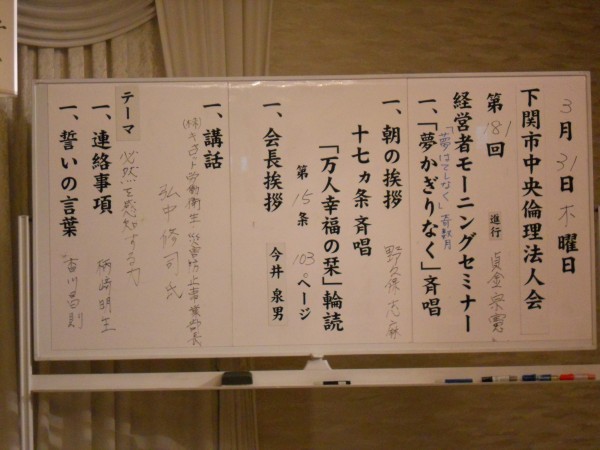 3月31日木曜日
下関市中央倫理法人会
第181回 進行
経営者モーニングセミナー
「夢はてしなく」斉唱
一、「夢かぎりなく」斉唱
一、朝の挨拶 野久保
十七ヵ条斉唱
「万人幸福の栞」輪読
第15条 103ページ
一、会長挨拶 今井泉男
一、講話
(株) 労働衛生 災害防止事業部長
弘中修司氏
テーマ 必然を感知する力
一、連絡事項 柄崎明生
一、誓いの言葉 香川昌則